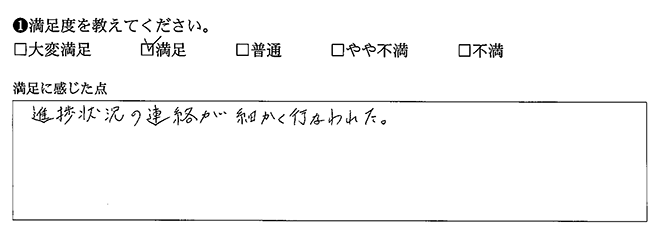 ❶満足度を教えてください。
□大変満足 ☑満足 □普通 □やや不満 □不満
満足に感じた点
進捗状況の連絡が細かく行なわれた。